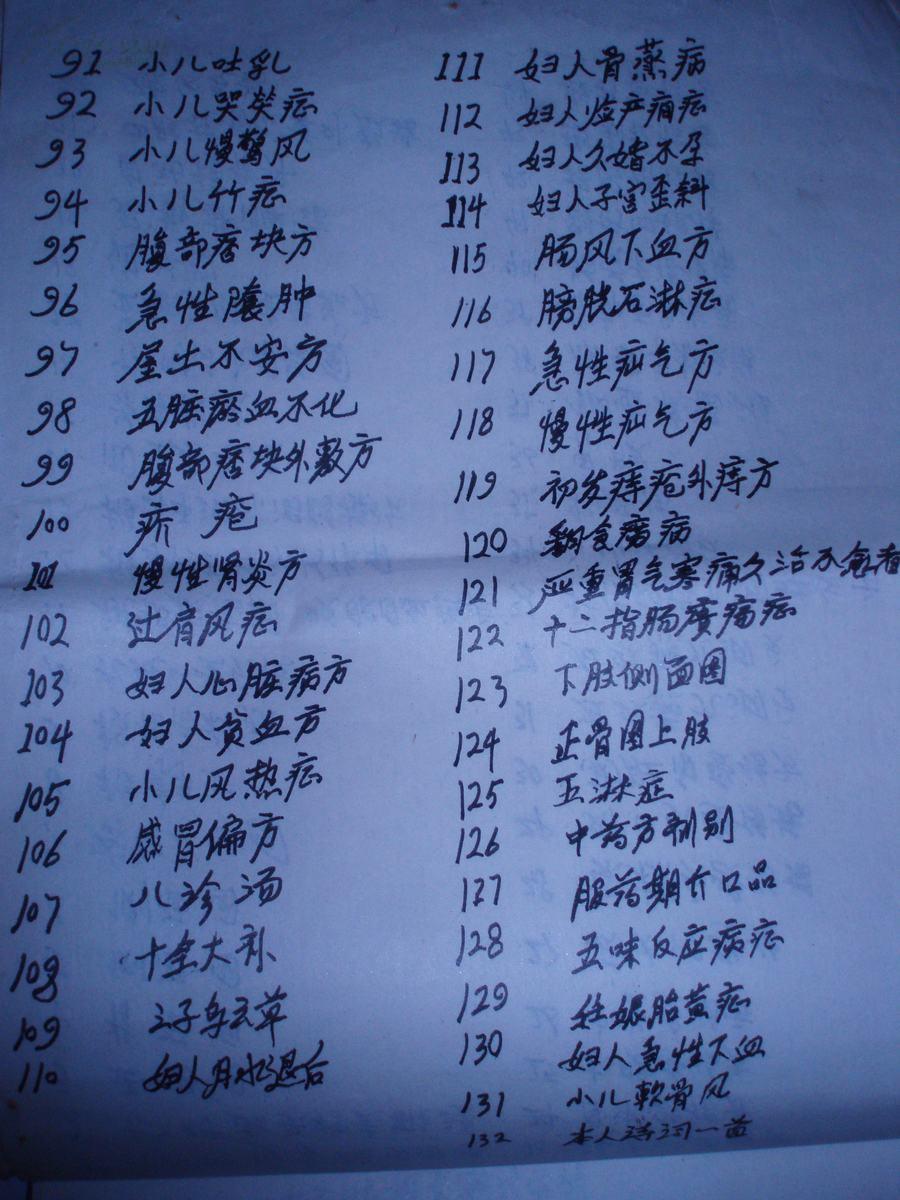 91 小儿吐乳
92 小儿哭症
93 小儿慢惊风
94 小儿竹症
95 腹部痞块方
96 急性肿
97 屋土不安方
98 五脏瘀血不化
99 腹部痞块外敷方
100 疥疮
101 慢性肾炎方
102 过肩风症
103 妇人心脏病方
104 妇人贫血方
105 小儿风热症
106 感冒偏方
107 八珍汤
108 十全大补
109 三子草
110 妇人月水退后
111 妇人骨蒸病
112 妇人产症
113 妇人久婚不孕
114 妇人子宫歪斜
115 肠风下血方
116 膀胱石淋症
117 急性疝气方
118 慢性疝气方
119 初发痔疮外痔方
120 翻食病
121 严重胃气寒痛久治不愈者
122 十二指肠溃疡症
123 下肢侧面图
124 正骨图上肢
125 五淋症
126 中药方制别
127 服药期介口品
128 五味反应病症
129 妊娠胎黄症
130 妇人急性下血
131 小儿軟骨风
132 本人诗词一首